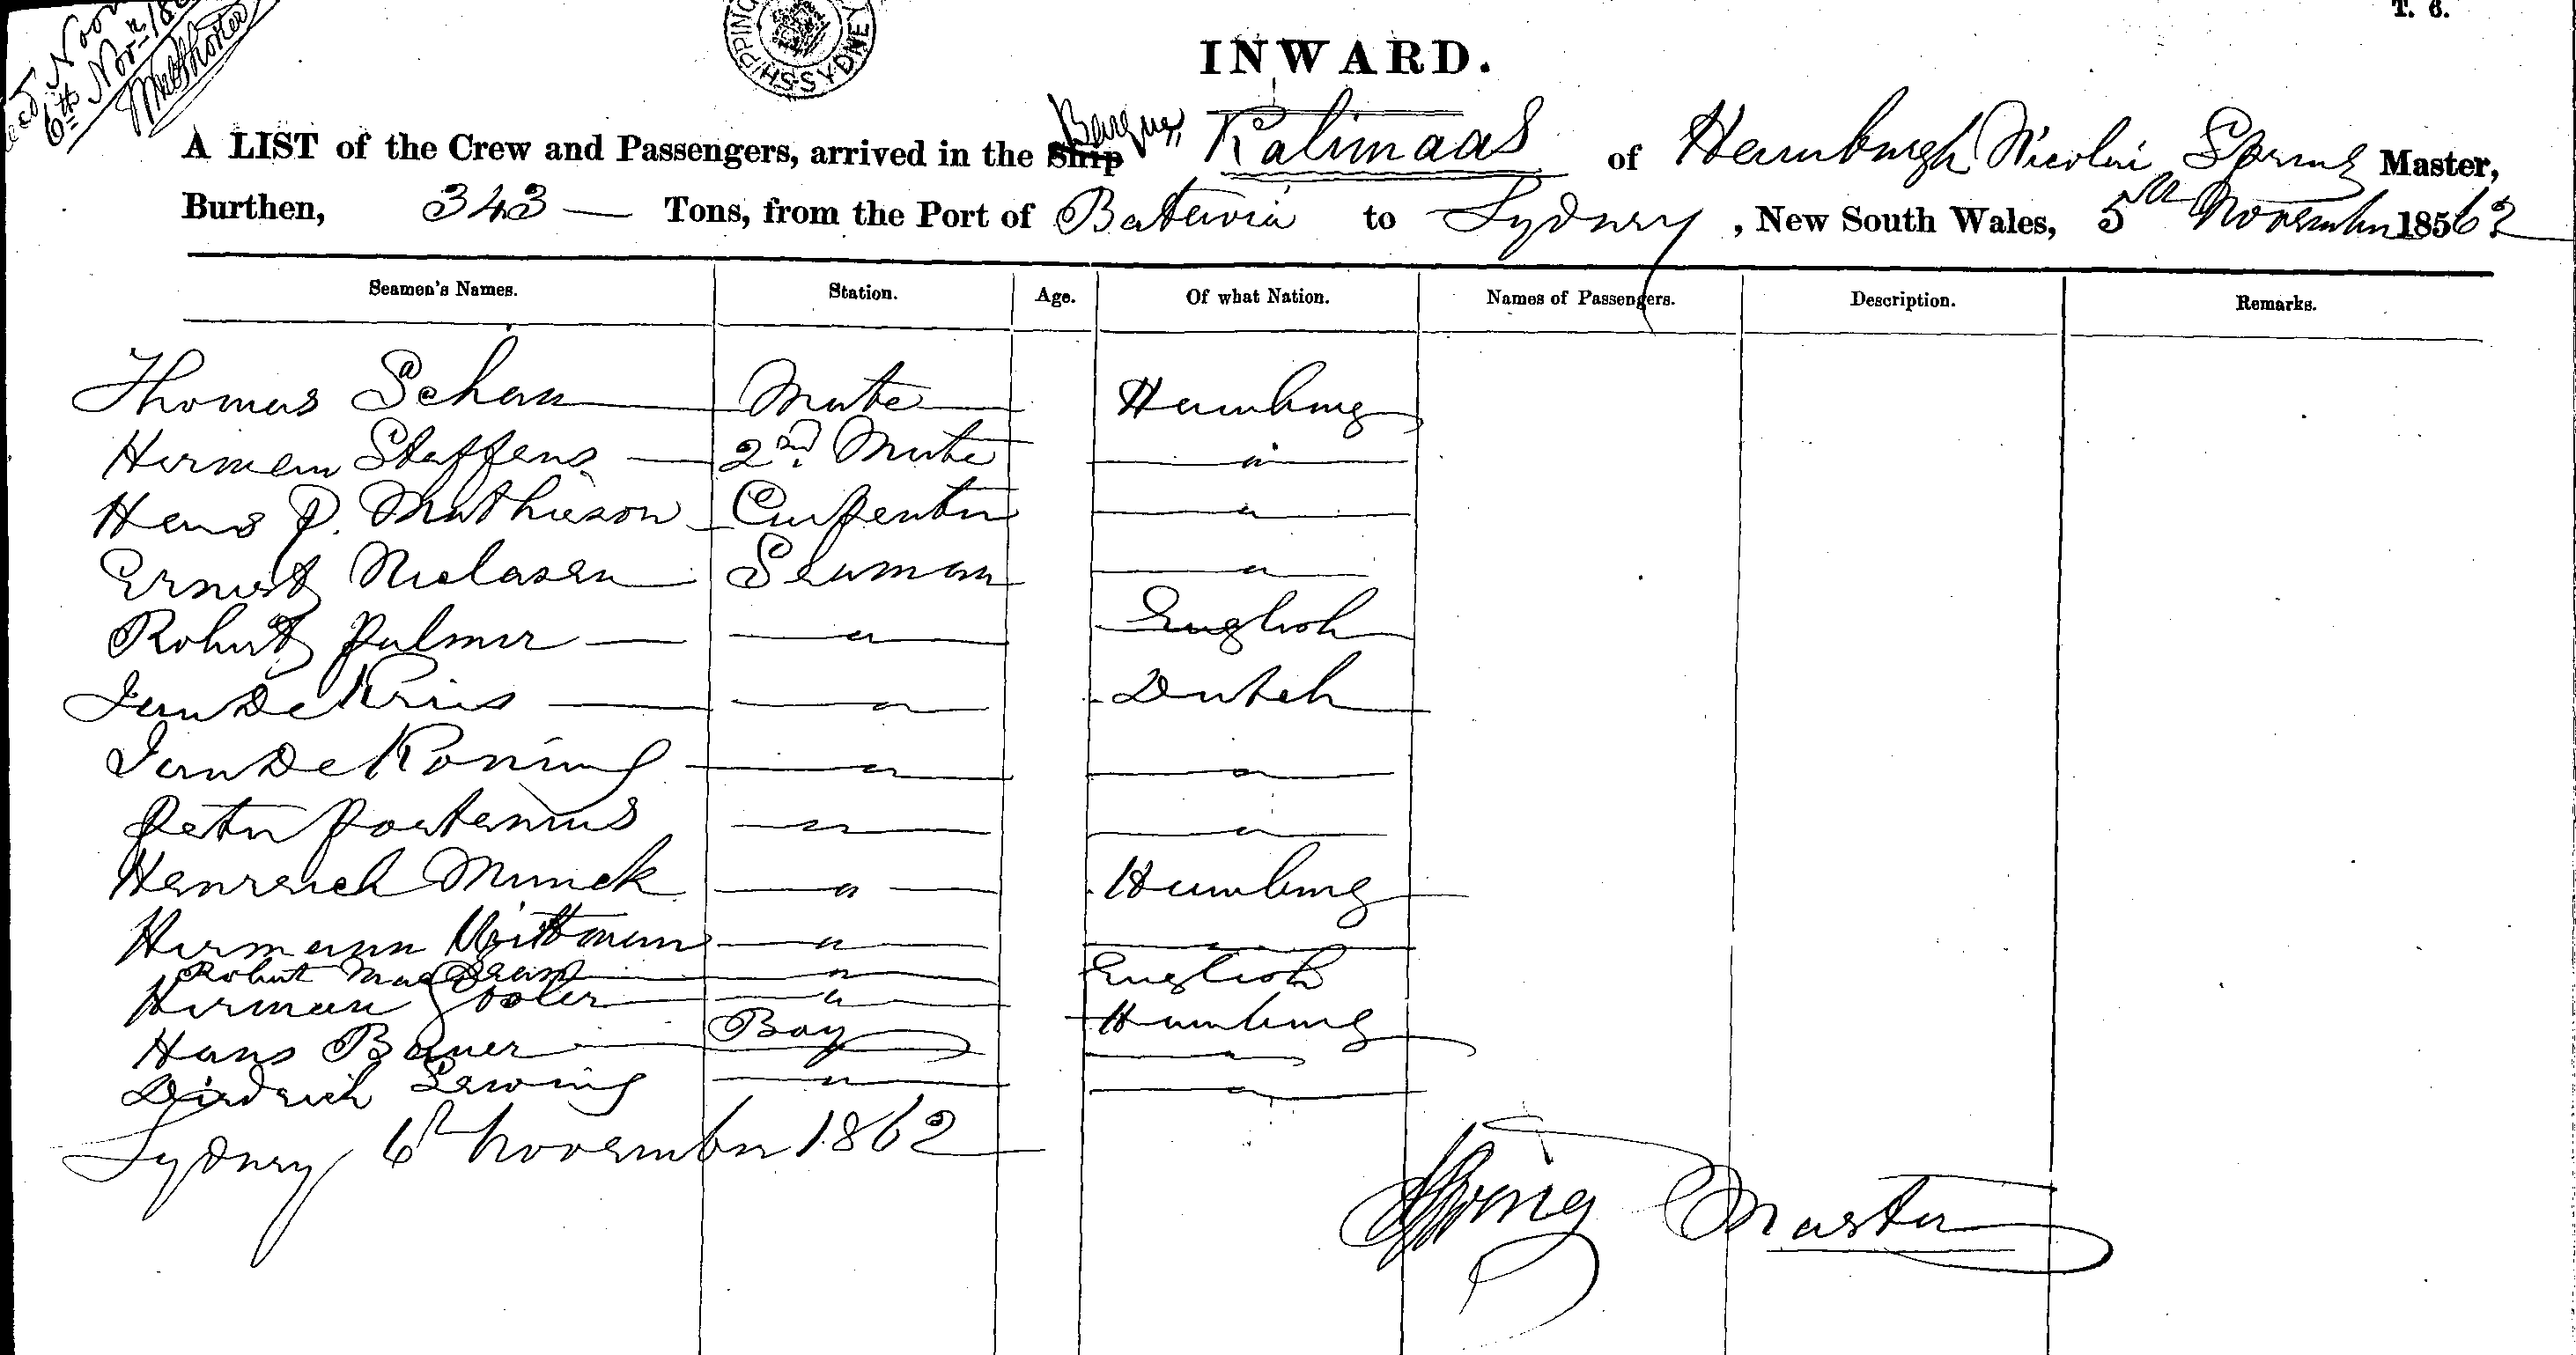 T. 6.
6th Nov
SHIPPING SYDNEY
INWARD.
A LIST of the Crew and Passengers, arrived in the Ship Barque "Kalimaas of Hamburgh Nicolai Spring Master,
Burthen, 343 — Tons, from the Port of Batavia to Sydney, New South Wales, 5th November 18562
Seamen's Names. Station. Age. Of what Nation. Names of Passengers. Description. Remarks.
Thomas Schau Mate Hamburg
Herman Steffens — 2nd Mate "
Hans P. Mathieson Carpenter "
Ernest Nielasen Seaman "
Robert Palmer — " English
Jan De Kriis — " Dutch
Jan De Koning — " "
Peter Portemus " "
Henreich Munck — " — Hamburg
Hermann Wittman — " "
Robert MacGean " English
Herman Gosler — " Hamburg
Hans Bauer Boy "
Diedreich Lewing — " "
Sydney 6th November 1862
Spring Master